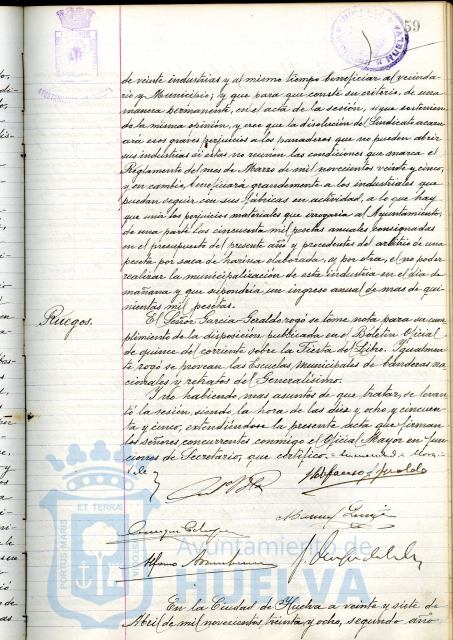 59
de veinte industrias y al mismo tiempo beneficiar al vecinda-
rio y Municipio; y que para que conste su criterio, de una
manera permanente, en el acta de la sesión, sigue sosteniendo
de la misma opinión, y cree que la disolución del Sindicato acarre
ará esos graves perjuicios a los panaderos que no puedan abrir
sus industrias si estas no reunen las condiciones que marca el
Reglamento del mes de Marzo de mil novecientos veinte y cinco,
y en cambio, beneficiará grandemente a los industriales que
puedan seguir con sus fábricas en actividad, a lo que hay
que unir los perjuicios materiales que irrogaria al Ayuntamiento,
de una parte las cincuenta mil pesetas anuales consignadas
en el presupuesto del presente año y procedentes del arbitrio de una
peseta por saca de harina elaborada, y por otra, el no poder
realizar la municipalización de esta industria en el dia de
mañana y que supondria un ingreso anual de mas de qui-
nientas mil pesetas.
Ruegos.
El Señor Garcia Geraldo rogó se tome nota para su cum-
plimiento de la disposición publicada en el Boletin Oficial
de quince del corriente sobre la Fiesta del Libro. Igualmen
te rogó se provean las Escuelas municipales de banderas na
cionales y retratos del Generalisimo.
Y no habiendo mas asuntos de que tratar, se levan
tó la sesión, siendo la hora de las diez y ocho y cincuen
ta y cinco, entendiéndose la presente acta que firman
los señores concurrentes conmigo el Oficial Mayor en fun
ciones de Secretario, que certifico.
Ildefonso Geraldo
Ayuntamiento de
HUELVA
PORTUS MARIS
ET TERRAE
CUSTODIA
En la Ciudad de Huelva a veinte y siete de
Abril de mil novecientos treinta y ocho, segundo año